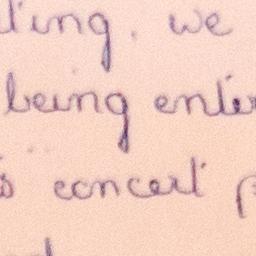 ting. we
being ente
s concert p